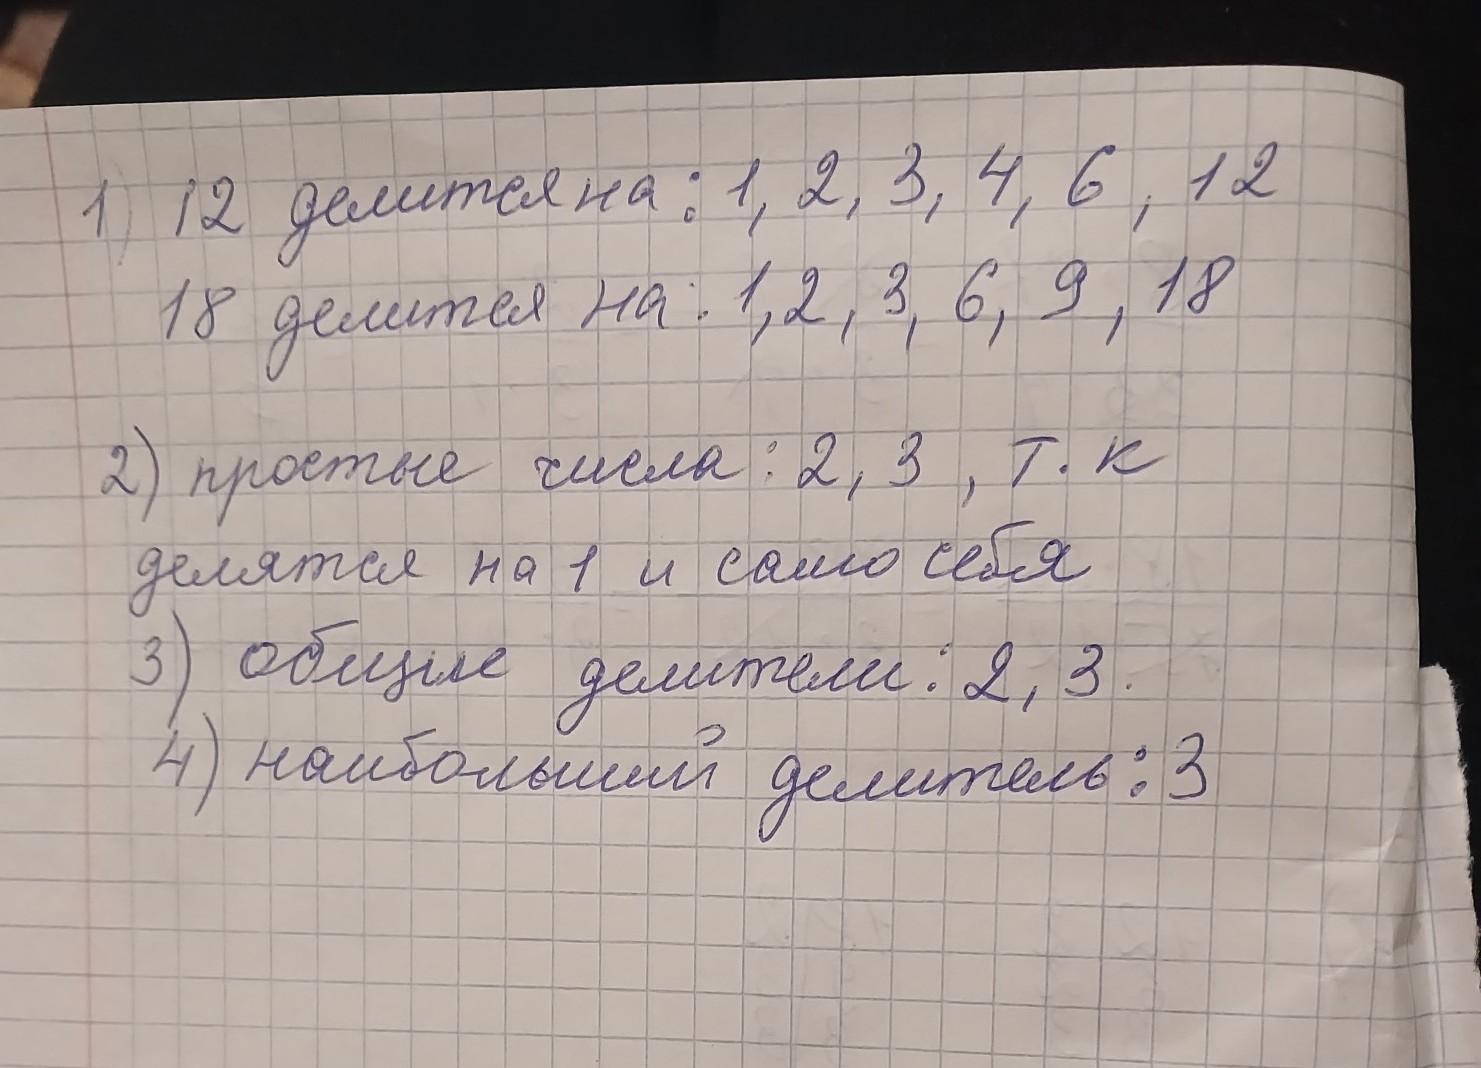 1) 12 делится на: 1, 2, 3, 4, 6, 12
18 делится на: 1, 2, 3, 6, 9, 18
2) простые числа: 2, 3, т. к
делятся на 1 и само себя
3) общие делители: 2, 3.
4) наибольший делитель: 3